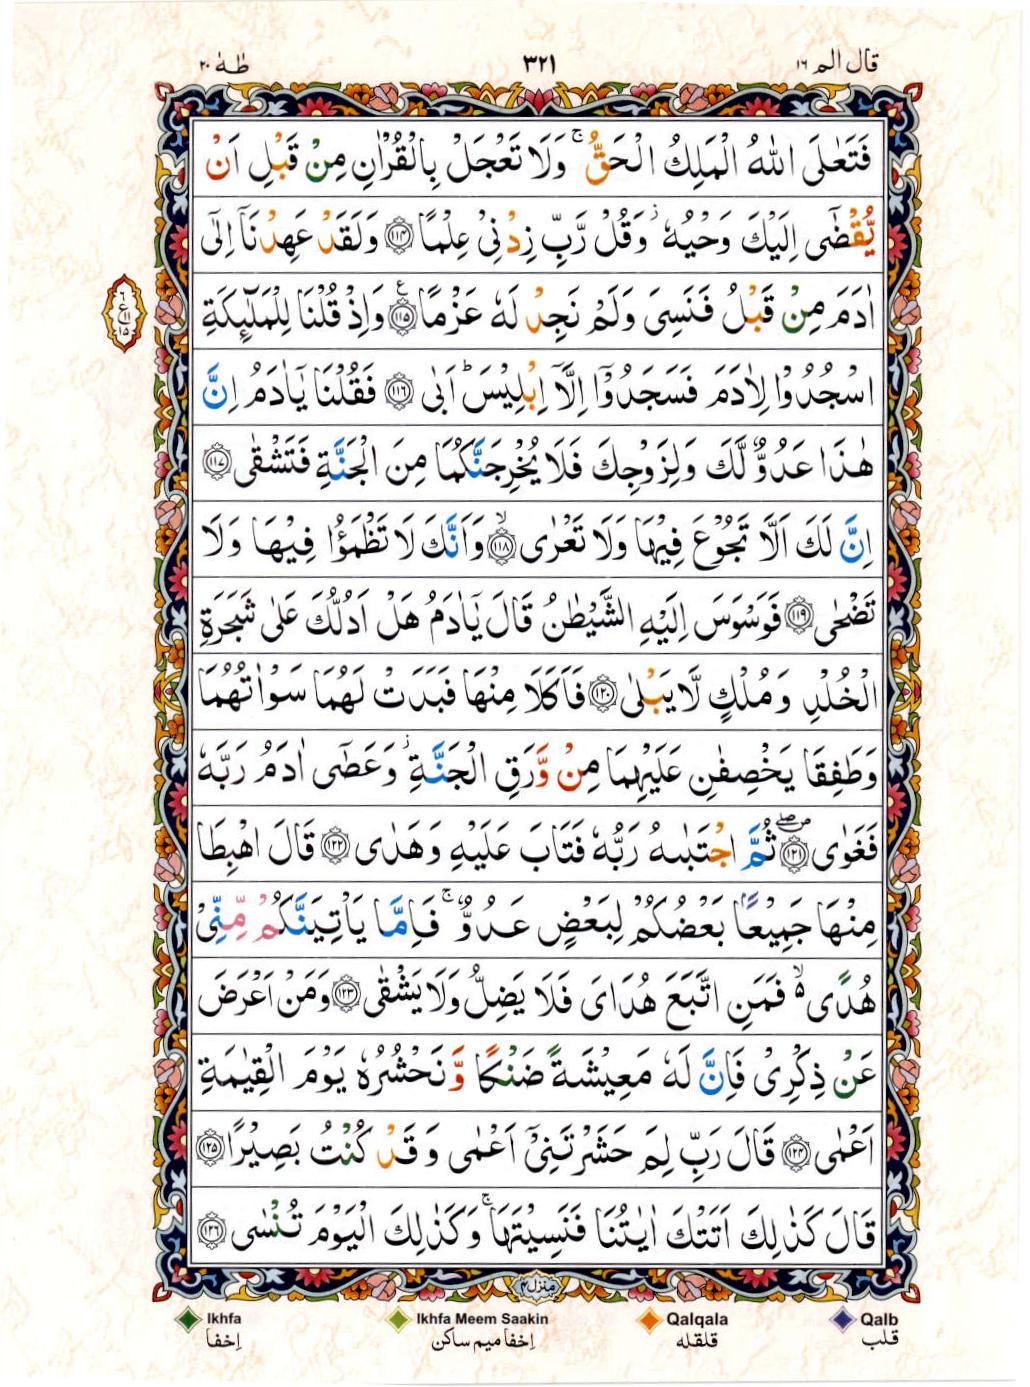 قال الم ١٦
٣٢١
طٰهٰ ٢٠
فَتَعٰلَی اللّٰهُ الْمَلِكُ الْحَقُّ ۚ وَلَا تَعْجَلْ بِالْقُرْاٰنِ مِنْ قَبْلِ اَنْ
یُّقْضٰۤی اِلَیْكَ وَحْیُهٗ ؗ وَقُلْ رَّبِّ زِدْنِیْ عِلْمًا ﴿۱۱۴﴾ وَلَقَدْ عَهِدْنَاۤ اِلٰۤی
اٰدَمَ مِنْ قَبْلُ فَنَسِیَ وَلَمْ نَجِدْ لَهٗ عَزْمًا ﴿۱۱۵﴾ ع وَاِذْ قُلْنَا لِلْمَلٰٓىِٕكَةِ
٦
ع
١١
١٥
اسْجُدُوْا لِاٰدَمَ فَسَجَدُوْۤا اِلَّاۤ اِبْلِیْسَ ؕ اَبٰی ﴿۱۱۶﴾ فَقُلْنَا یٰۤاٰدَمُ اِنَّ
هٰذَا عَدُوٌّ لَّكَ وَلِزَوْجِكَ فَلَا یُخْرِجَنَّكُمَا مِنَ الْجَنَّةِ فَتَشْقٰی ﴿۱۱۷﴾
اِنَّ لَكَ اَلَّا تَجُوْعَ فِیْهَا وَلَا تَعْرٰی ۙ﴿۱۱۸﴾ وَاَنَّكَ لَا تَظْمَؤُا فِیْهَا وَلَا
تَضْحٰی ﴿۱۱۹﴾ فَوَسْوَسَ اِلَیْهِ الشَّیْطٰنُ قَالَ یٰۤاٰدَمُ هَلْ اَدُلُّكَ عَلٰی شَجَرَةِ
الْخُلْدِ وَمُلْكٍ لَّا یَبْلٰی ﴿۱۲۰﴾ فَاَكَلَا مِنْهَا فَبَدَتْ لَهُمَا سَوْاٰتُهُمَا
وَطَفِقَا یَخْصِفٰنِ عَلَیْهِمَا مِنْ وَّرَقِ الْجَنَّةِ ؗ وَعَصٰۤی اٰدَمُ رَبَّهٗ
فَغَوٰی ﴿۱۲۱﴾ۖ ثُمَّ اجْتَبٰىهُ رَبُّهٗ فَتَابَ عَلَیْهِ وَهَدٰی ﴿۱۲۲﴾ قَالَ اهْبِطَا
مِنْهَا جَمِیْعًۢا بَعْضُكُمْ لِبَعْضٍ عَدُوٌّ ۚ فَاِمَّا یَاْتِیَنَّكُمْ مِّنِّیْ
هُدًی ۙ۬ فَمَنِ اتَّبَعَ هُدَایَ فَلَا یَضِلُّ وَلَا یَشْقٰی ﴿۱۲۳﴾ وَمَنْ اَعْرَضَ
عَنْ ذِكْرِیْ فَاِنَّ لَهٗ مَعِیْشَةً ضَنْكًا وَّنَحْشُرُهٗ یَوْمَ الْقِیٰمَةِ
اَعْمٰی ﴿۱۲۴﴾ قَالَ رَبِّ لِمَ حَشَرْتَنِیْۤ اَعْمٰی وَقَدْ كُنْتُ بَصِیْرًا ﴿۱۲۵﴾
قَالَ كَذٰلِكَ اَتَتْكَ اٰیٰتُنَا فَنَسِیْتَهَا ۚ وَكَذٰلِكَ الْیَوْمَ تُنْسٰی ﴿۱۲۶﴾
منزل ٤
Ikhfa
Ikhfa Meem Saakin
Qalqala
Qalb
اِخفا
اِخفا میم ساکن
قلقله
قلب